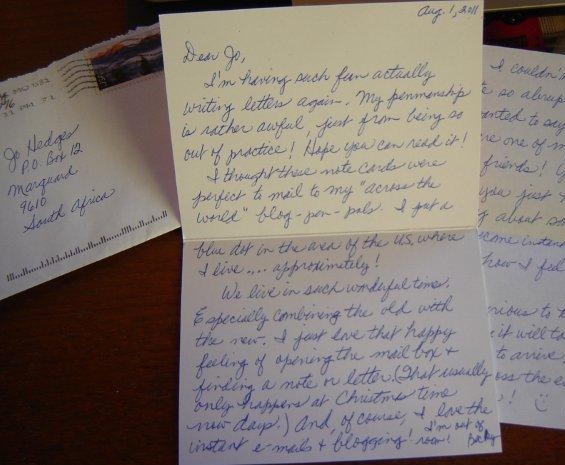 MO 631
31 PM 7 1
Jo Hedges
P.O. Box 12
Marquard
9610
South Africa
Aug. 1, 2011
Dear Jo,
I'm having such fun actually
writing letters again. My penmanship
is rather awful, just from being so
out of practice! Hope you can read it!
I thought these note cards were
perfect to mail to my "across the
world" blog-pen-pals. I put a
blue dot in the area of the US. where
I live.... approximately!
We live in such wonderful times.
Especially combining the old with
the new. I just love that happy
feeling of opening the mail box +
finding a note or letter. (That usually
only happens at Christmas time
now days.) And, of course, I love the
instant e-mails & blogging! I'm out of
room! Becky
I couldn't
so abrup
anted to say
re one of m
friends!
you just
about so
come instan
how I feel
rious to
it will ta
to arrive
oss the
! ☺